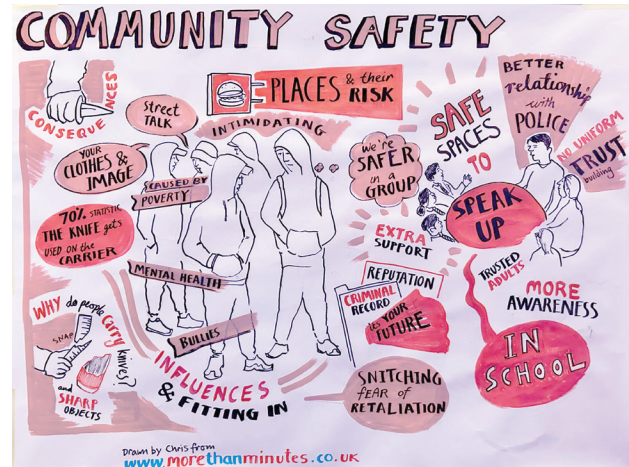 COMMUNITY SAFETY
CONSEQUENCES
Street
TALK
PLACES & their
RISK
INTIMIDATING
YOUR
CLOTHES &
IMAGE
CAUSED BY
POVERTY
70% STATISTIC
THE KNIFE gets
USED ON the
CARRIER
MENTAL HEALTH
BULLIES
WHY do people
carry
knives?
SNAP
and
SHARP
OBJECTS
INFLUENCES
& FITTING IN
we're
SAFER
in a
GROUP
EXTRA
SUPPORT
REPUTATION
CRIMINAL
RECORD
its YOUR
FUTURE
SNITCHING
FEAR OF
RETALIATION
SAFE
SPACES
TO
SPEAK
UP
BETTER
relationship
with
POLICE
NO UNIFORM
TRUST
building
TRUSTED
ADULTS
MORE
AWARENESS
IN
SCHOOL
Drawn by Chris from
www.morethanminutes.co.uk